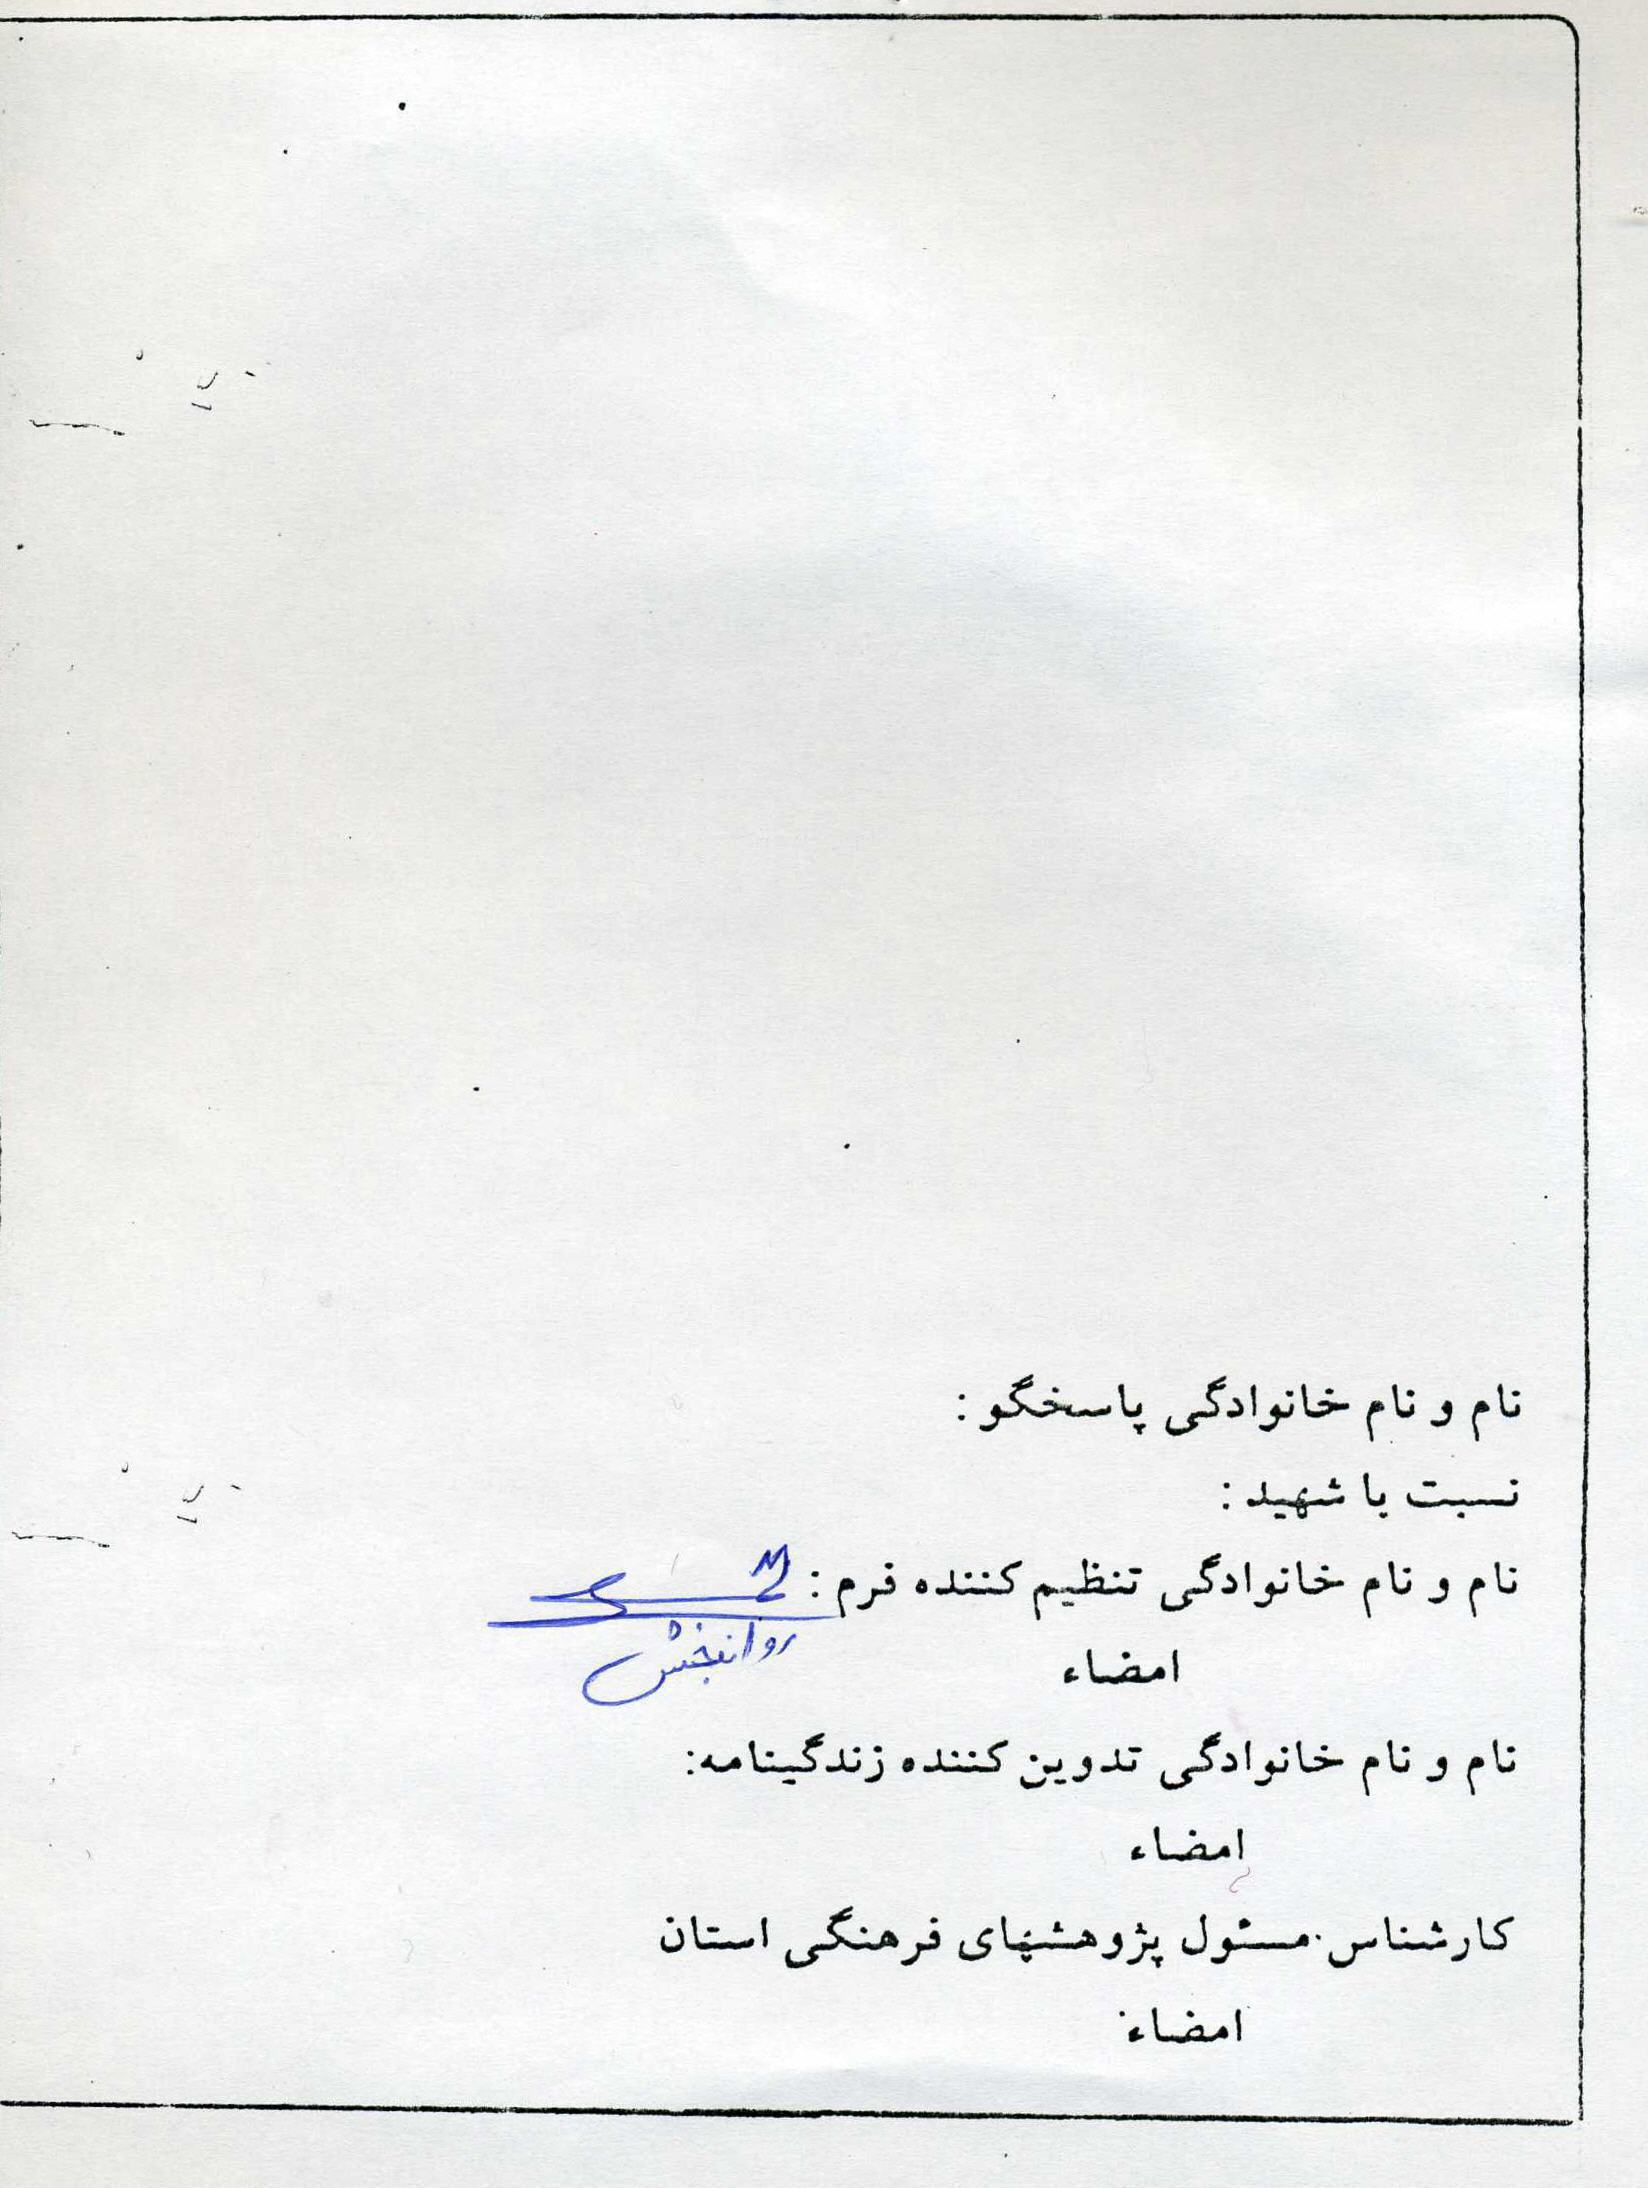 نام و نام خانوادگی پاسخگو :
نسبت با شهید :
نام و نام خانوادگی تنظیم کننده فرم :
روانبخش
امضاء
نام و نام خانوادگی تدوین کننده زندگینامه:
امضاء
کارشناس مسئول پژوهشهای فرهنگی استان
امضاء